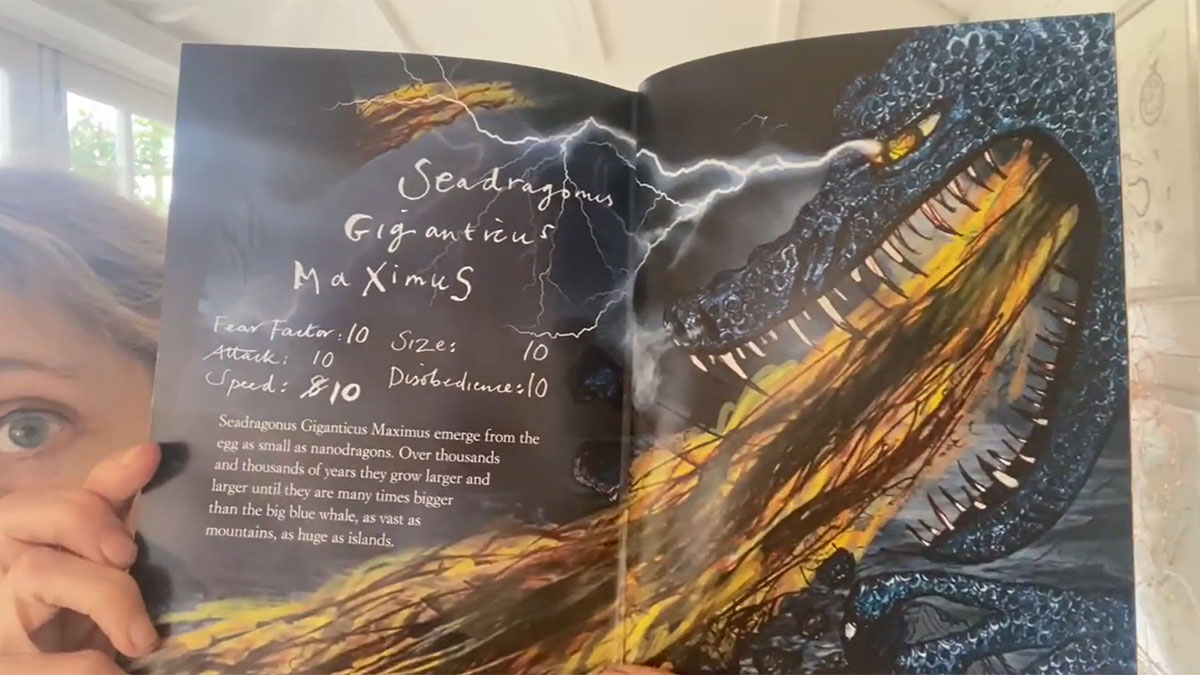 Seadragonus
Giganticus
Maximus
Fear Factor: 10
Attack: 10
Speed: 10
Size: 10
Disobedience: 10
Seadragonus Giganticus Maximus emerge from the
egg as small as nanodragons. Over thousands
and thousands of years they grow larger and
larger until they are many times bigger
than the big blue whale, as vast as
mountains, as huge as islands.